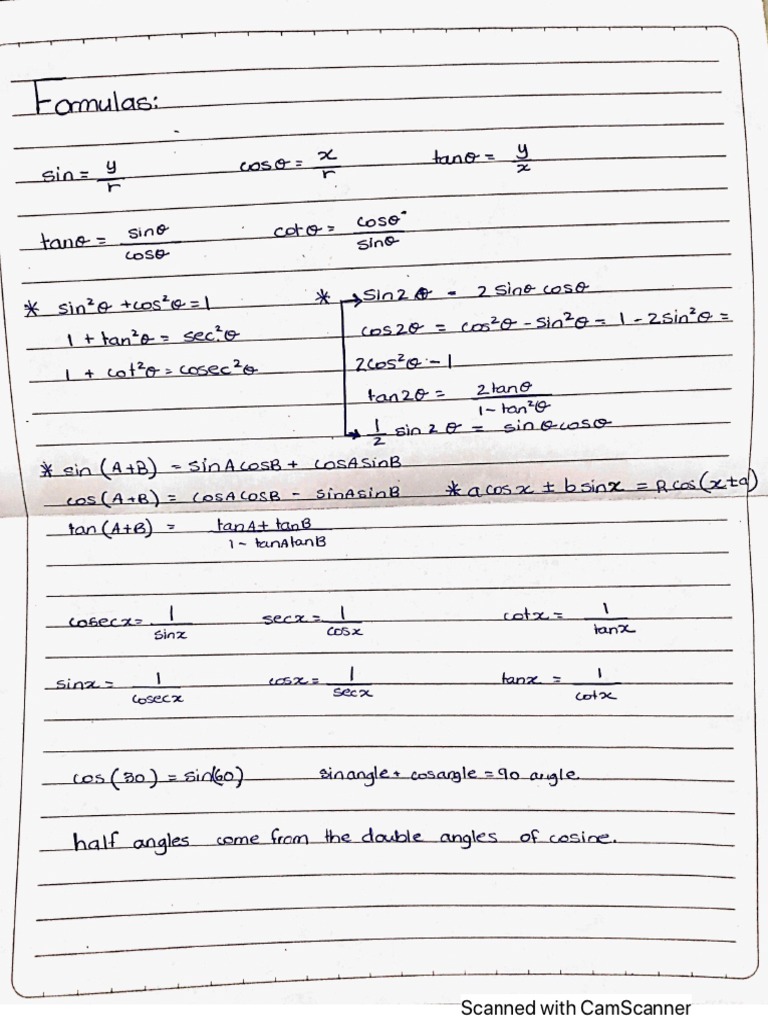 Formulas:
sin = y/r    cosθ = x/r    tanθ = y/x
tanθ = sinθ/cosθ    cotθ = cosθ/sinθ
* sin²θ + cos²θ = 1    * sin2θ = 2 sinθ cosθ
1 + tan²θ = sec²θ    cos2θ = cos²θ - sin²θ = 1 - 2sin²θ =
1 + cot²θ = cosec²θ    2cos²θ - 1
tan2θ = 2tanθ/1 - tan²θ
1/2 sin2θ = sinθcosθ
* sin(A+B) = sinAcosB + cosAsinB
cos(A+B) = cosAcosB - sinAsinB    * a cosx ± b sinx = R cos(x±a)
tan(A+B) = tanA + tanB/1 - tanAtanB
cosecx = 1/sinx    secx = 1/cosx    cotx = 1/tanx
sinx = 1/cosecx    cosx = 1/secx    tanx = 1/cotx
cos(30) = sin(60)    sinangle + cosangle = 90 angle
half angles come from the double angles of cosine.
Scanned with CamScanner